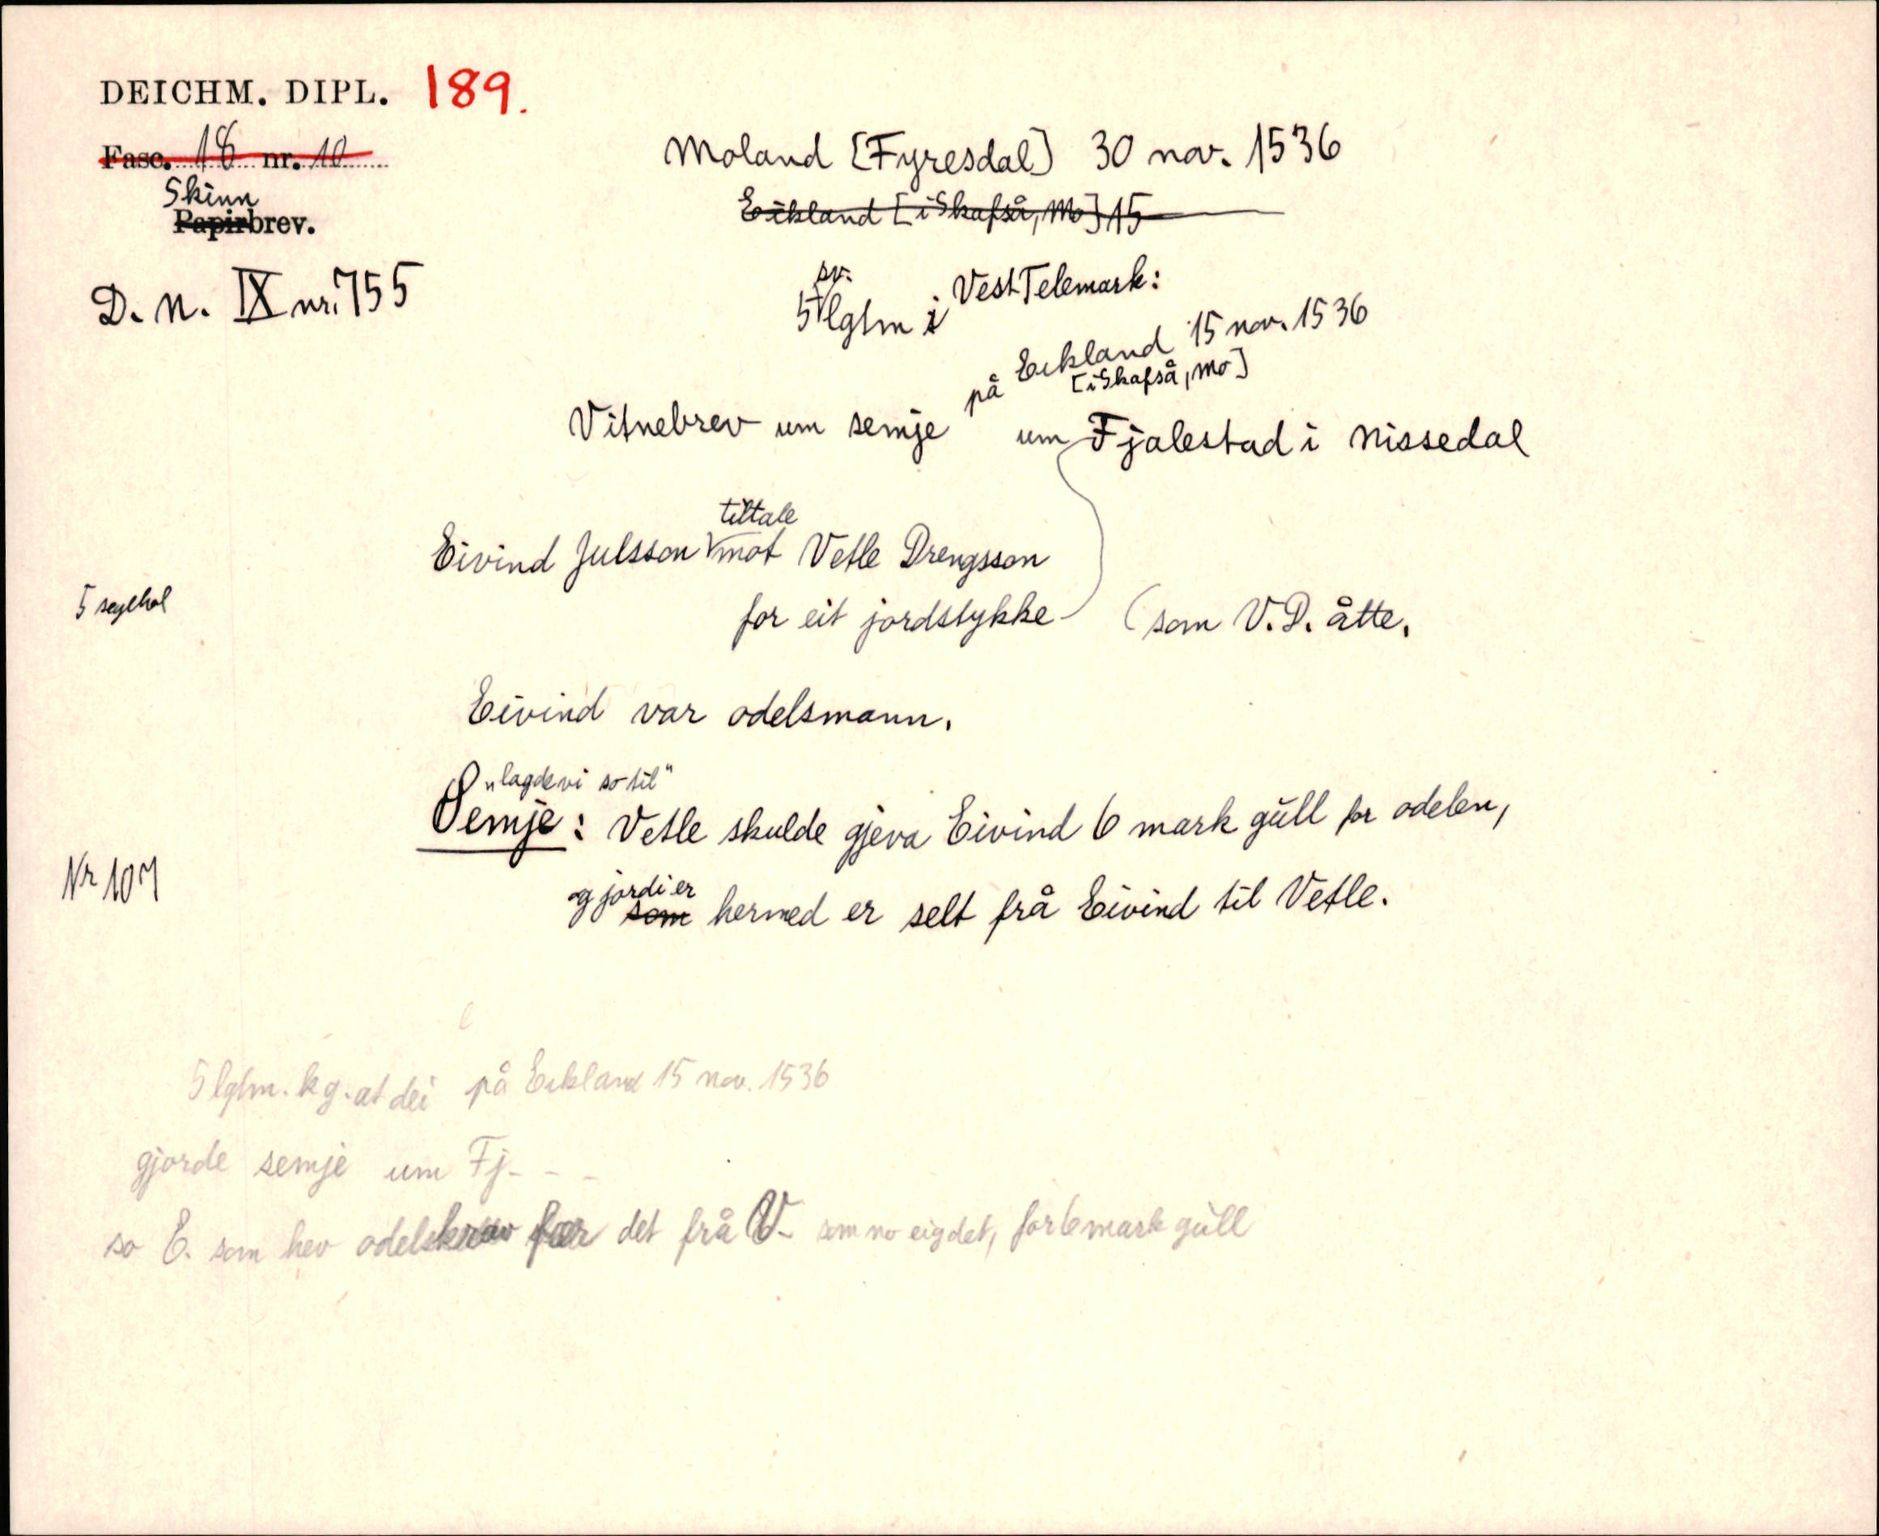 DEICHM. DIPL. 189.
Fasc. 18 nr. 10
Skinn
Papirbrev.
D. N. IX nr. 755
Moland [Fyresdal] 30 nov. 1536
Eikland [i Skafså, Mo] 15
sv.
5 lgtm i Vest Telemark:
på Eikland 15 nov. 1536
[i Skafså, Mo]
Vitnebrev um semje um Fjalestad i Nissedal
tiltale
Eivind Julsson mot Vetle Drengsson
5 seglhol
for eit jordstykke (som V. D. åtte.
Eivind var odelsmann.
"lagde vi so til"
Semje: Vetle skulde gjeva Eivind 6 mark gull for odelen,
Nr 107
og jordi er
som hermed er selt frå Eivind til Vetle.
5 lgtm. kg. at dei på Eikland 15 nov. 1536
gjorde semje um Fj - - -
so E. som hev odelskrav fær det frå V. som no eig det, for 6 mark gull